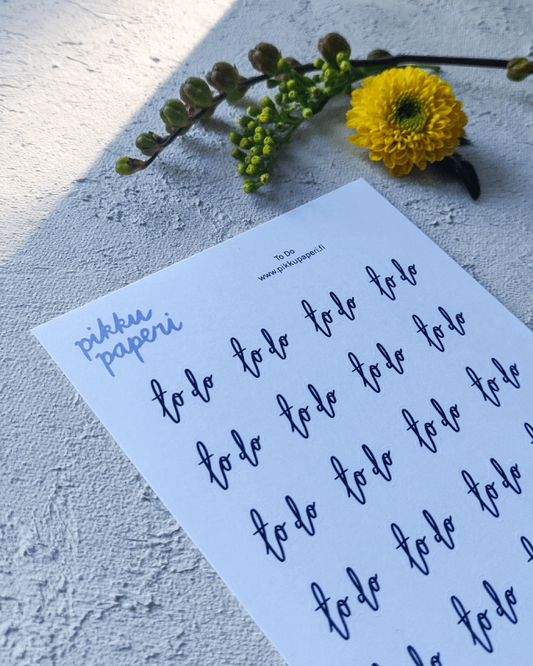 To Do
www.pikkupaperi.fi
pikku
paperi
to do to do to do to do
to do to do to do to do
to do to do to do to do
to do to do to do
to do